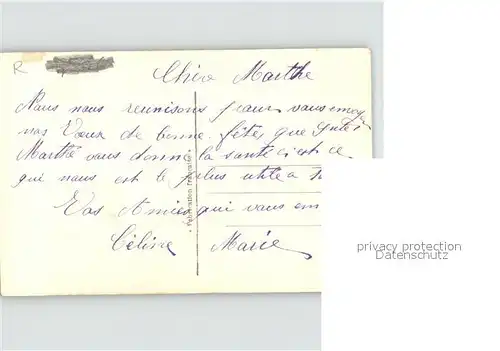 R
Chère Marthe
Nous nous reunisons pour vous envoyer
nos Vœux de bonne fêtes que Ste
Marthe vous donne la santé c'est ce
qui nous est le plus utile a
Vos Amies qui vous em
Céline Marie
* Fabrication française *
privacy protection
Datenschutz